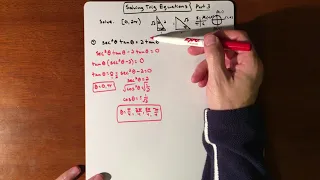 Solving Trig Equations Part 3
Solve: [0, 2π)
① sec²θ tanθ = 2 tanθ
sec²θ tanθ - 2 tanθ = 0
tanθ (sec²θ - 2) = 0
tanθ = 0 sec²θ - 2 = 0
θ = 0, π sec²θ = 2
cosθ = ±
θ = π/4, 3π/4, 5π/4, 7π/4